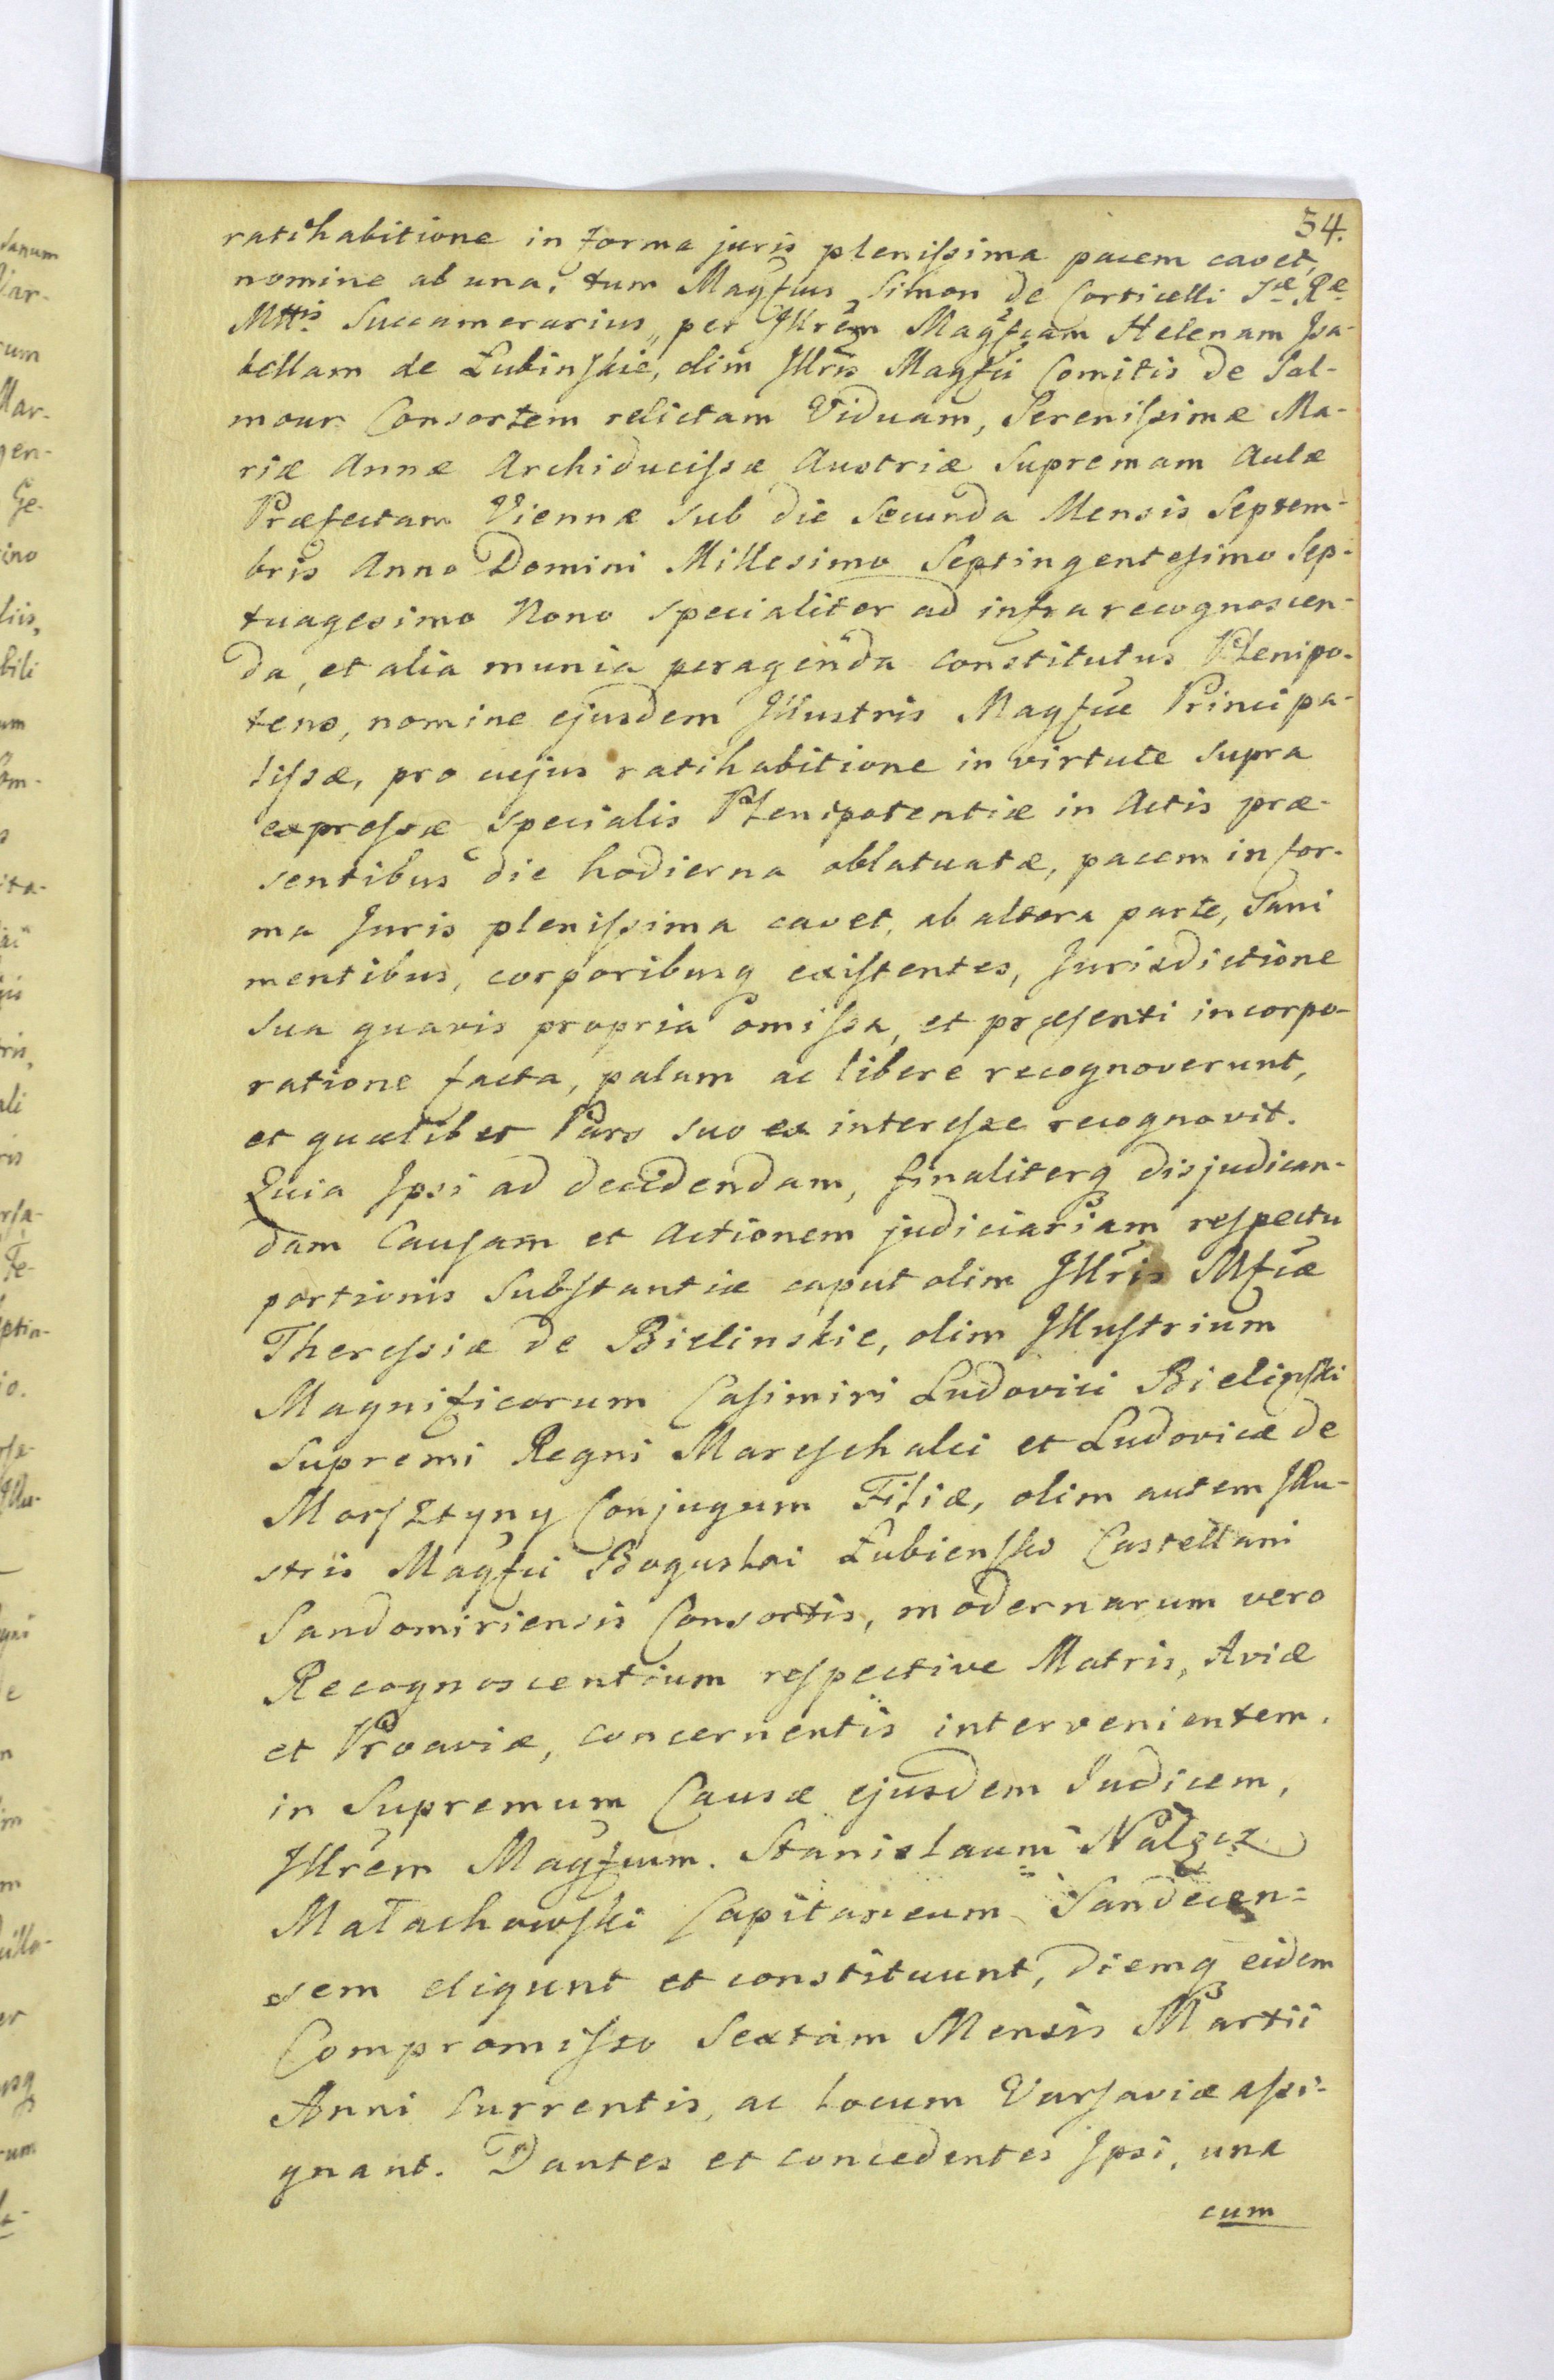 54.
ratihabitione in forma juris plenissima pacem cavet,
nomine ab una, tum Magfcus Simon de Corticelli Sæ Ræ
Mttis Succamerarius, per Illrem Magfcam Helenam Isa-
bellam de Łubinskie, olim Illris Magfci Comitis de Sal-
mour Consortem relictam Viduam, Serenissimæ Ma-
riæ Annæ Archiducissæ Austriæ Supremam Aulæ
Præfectam Viennæ sub die Secunda Mensis Septem-
bris Anno Domini Millesimo Septingentesimo Sep-
tuagesimo Nono specialiter ad infra recognoscen-
da, et alia munia peragenda constitutus Plenipo-
tens, nomine ejusdem Illustris Magfcæ Principa-
lissæ, pro cujus ratihabitione in virtute supra
expressæ specialis Plenipotentiæ in Actis præ-
sentibus die hodierna oblatuatæ, pacem in for-
ma Juris plenissima cavet, ab altera parte, Sani
mentibus, corporibusq existentes, Jurisdictione
sua quavis propria omissa, et præsenti incorpo-
ratione facta, palam ac libere recognoverunt,
et quælibet Pars suo ex interesse recognovit.
Quia Ipsi ad decidendam, finaliterq disjudican-
dam Causam et Actionem judiciariam respectu
portionis Substantiæ caput olim Illris Mfcæ
Theressiæ de Bielinskie, olim Illustrium
Magnificorum Casimiri Ludovici Bielinski
Supremi Regni Mareschalci et Ludovicæ de
Morsztyny Conjugum Filiæ, olim autem Illu-
stris Magfci Boguslai Łubiensko Castellani
Sandomiriensis Consortis, modernarum vero
Recognoscentium respective Matris, Aviæ
et Proaviæ, concernentis intervenientem,
in Supremum Causæ ejusdem Judicem,
Illrem Magfcum. Stanislaum Nałęcz
Małachowski Capitaneum Sandecen-
sem eligunt et constituunt, Diemq eidem
Compromisso Sextam Mensis Martii
Anni Currentis, ac Locum Varsaviæ assi-
gnant. Dantes et concedentes Ipsi, una
cum